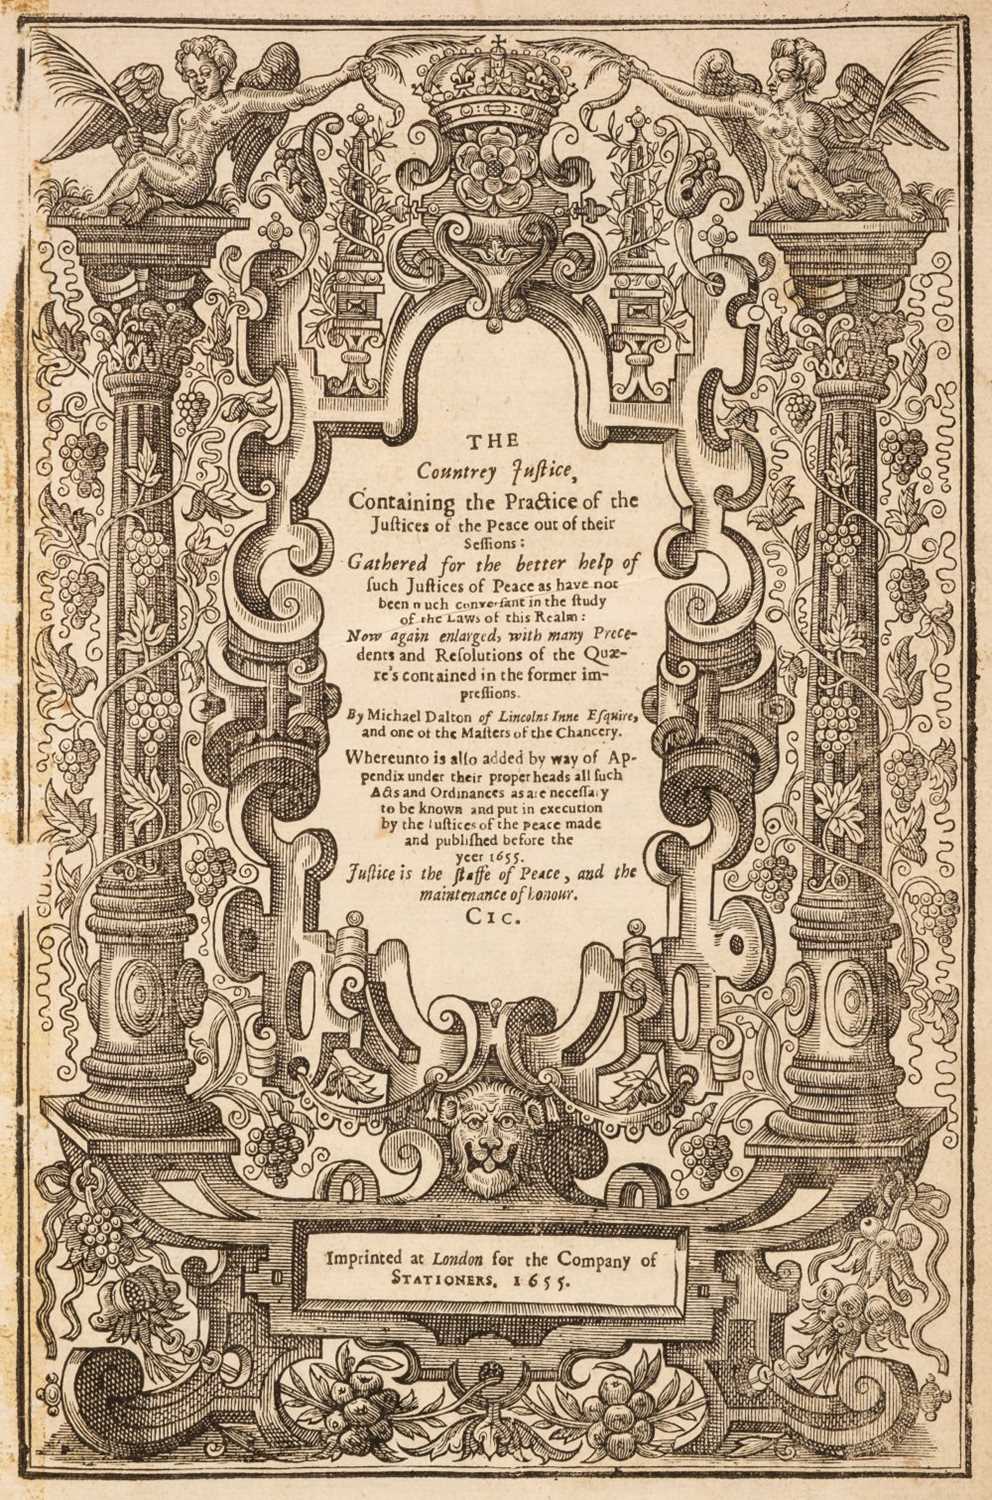 THE
Countrey Juſtice,
Containing the Practice of the
Juſtices of the Peace out of their
Seſſions:
Gathered for the better help of
ſuch Juſtices of Peace as have not
been much converſant in the ſtudy
of the Laws of this Realm:
Now again enlarged, with many Prece-
dents and Reſolutions of the Quæ-
re's contained in the former im-
preſſions.
By Michael Dalton of Lincolns Inne Eſquire,
and one of the Maſters of the Chancery.
Whereunto is alſo added by way of Ap-
pendix under their proper heads all ſuch
Acts and Ordinances as are neceſſary
to be known and put in execution
by the Iuſtices of the Peace made
and publiſhed before the
yeer 1655.
Juſtice is the ſtaffe of Peace, and the
maintenance of honour.
CIC.
Imprinted at London for the Company of
STATIONERS. 1655.